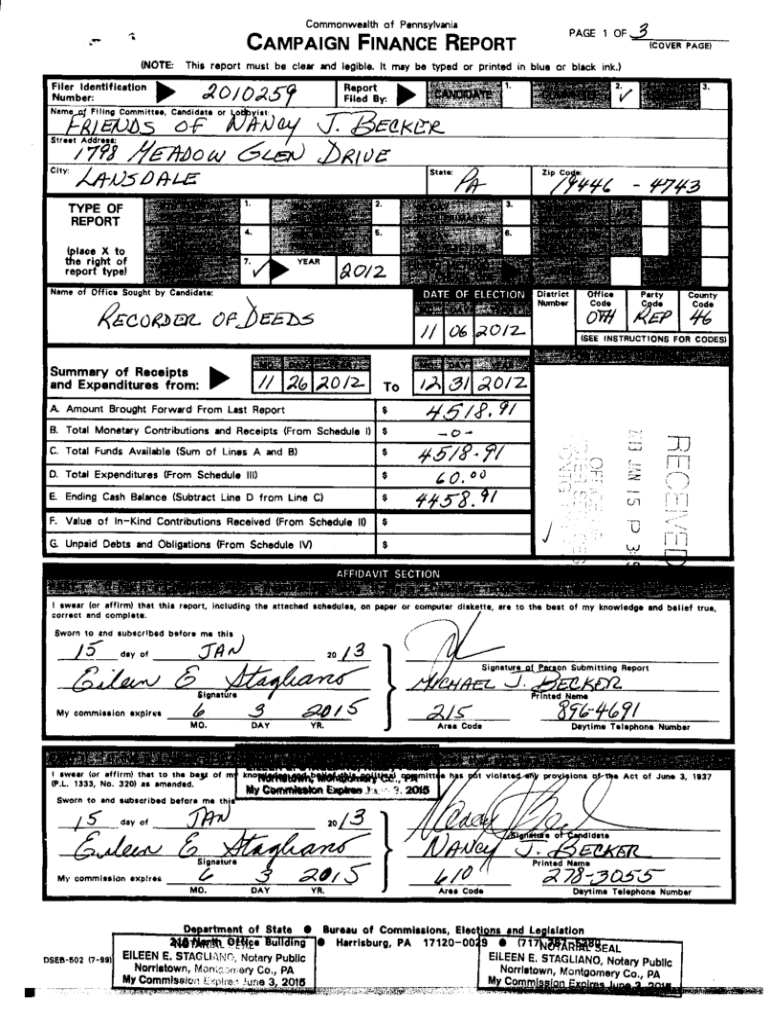 Commonwealth of Pennsylvania
CAMPAIGN FINANCE REPORT
PAGE 1 OF 3
(COVER PAGE)
(NOTE: This report must be clear and legible. It may be typed or printed in blue or black ink.)
Filer Identification Number: 2010259
Report Filed By: CANDIDATE 1. 2. ✓ 3.
Name of Filing Committee, Candidate or Lobbyist:
FRIENDS OF NANCY J. BECKER
Street Address:
1798 MEADOW GLEN DRIVE
City: LANSDALE State: PA Zip Code: 19446 - 4743
TYPE OF REPORT
(place X to the right of report type)
1. 2. 3.
4. 5. 6.
7. ✓ YEAR 2012
Name of Office Sought by Candidate:
RECORDER OF DEEDS
DATE OF ELECTION
11 06 2012
District Number Office Code Party Code County Code
OTH REP 46
(SEE INSTRUCTIONS FOR CODES)
Summary of Receipts and Expenditures from: 11 26 2012 To 12 31 2012
A. Amount Brought Forward From Last Report $ 4518.91
B. Total Monetary Contributions and Receipts (From Schedule I) $ -0-
C. Total Funds Available (Sum of Lines A and B) $ 4518.91
D. Total Expenditures (From Schedule III) $ 60.00
E. Ending Cash Balance (Subtract Line D from Line C) $ 4458.91
F. Value of In-Kind Contributions Received (From Schedule II) $
G. Unpaid Debts and Obligations (From Schedule IV) $
RECEIVED
2013 JAN 15 P
AFFIDAVIT SECTION
I swear (or affirm) that this report, including the attached schedules, on paper or computer diskette, are to the best of my knowledge and belief true, correct and complete.
Sworn to and subscribed before me this
15 day of JAN 20 13
Signature of Person Submitting Report
Eileen E Stagliano
Signature
MICHAEL J. BECKER
Printed Name
My commission expires 6 3 2015
MO. DAY YR.
215 896-4691
Area Code Daytime Telephone Number
I swear (or affirm) that to the best of my knowledge and belief this political committee has not violated any provisions of the Act of June 3, 1937 (P.L. 1333, No. 320) as amended.
Norristown, Montgomery Co., PA
My Commission Expires June 3, 2015
Sworn to and subscribed before me this
15 day of JAN 20 13
Signature of Candidate
Eileen E Stagliano
Signature
NANCY J. BECKER
Printed Name
My commission expires 6 3 2015
MO. DAY YR.
610 278-3055
Area Code Daytime Telephone Number
Department of State ● Bureau of Commissions, Elections and Legislation
210 North Office Building ● Harrisburg, PA 17120-0029 ● (717) 787-5280
DSEB-502 (7-99)
NOTARIAL SEAL
EILEEN E. STAGLIANO, Notary Public
Norristown, Montgomery Co., PA
My Commission Expires June 3, 2015
NOTARIAL SEAL
EILEEN E. STAGLIANO, Notary Public
Norristown, Montgomery Co., PA
My Commission Expires June 3, 2015